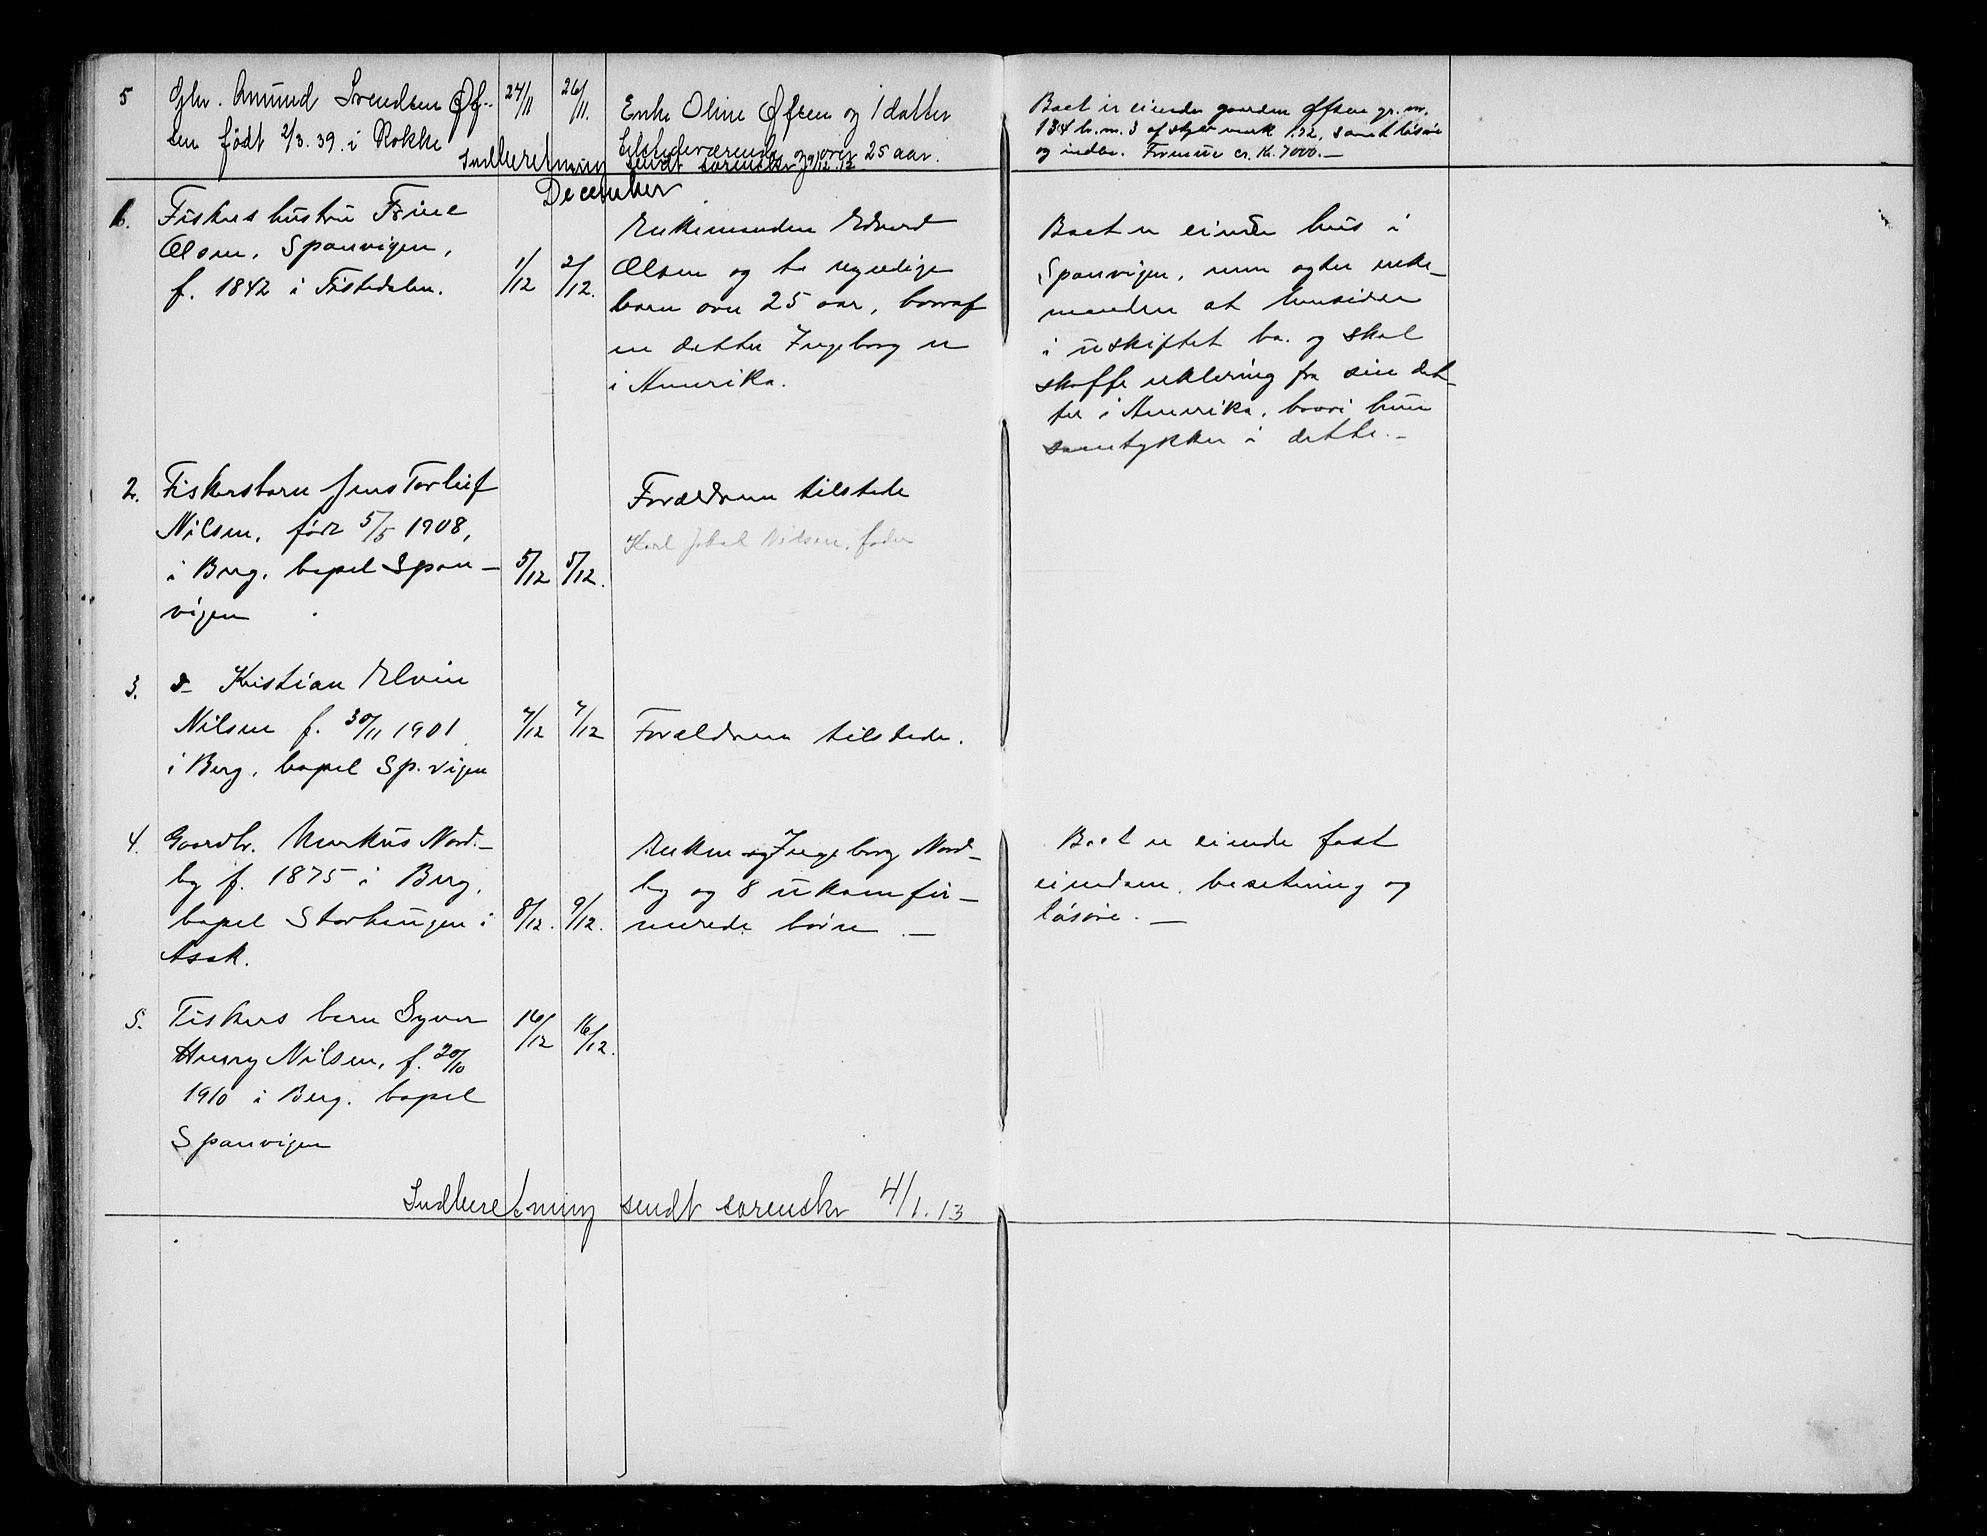 5
Gbr. Amund Svendsen Øf-
sen født 2/3. 39. i Rokke
24/11
26/11.
Enke Oline Øfsen og 1 datter
tilstedeværende og over 25 aar.
Boet er eiende gaarden Øfsen gr. nr.
134 br. nr. 3 af skyld mark 1.32, samt løsøre
og indbo. Formue ca. Kr. 7000.—
Indberetning sendt sorenskr. 9/12.12.
December
1.
Fiskers hustru Trine
Olsen, Sponvigen,
f. 1842 i Tistedalen.
1/12
2/12.
Enkemanden Edvard
Olsen og to myndige
barn over 25 aar, hvoraf
en datter Ingeborg er
i Amerika.
Boet er eiende hus i
Sponvigen, men agter enke-
manden at hensidde
i uskiftet bo. og skal
skaffe erklæring fra sin dat-
ter i Amerika, hvori hun
samtykker i dette.—
2.
Fiskersbarn Jens Torleif
Nilsen, født 5/5 1908,
i Berg, bopel Spon-
vigen
5/12
5/12.
Forældrene tilstede
Karl Johan Nilsen, fader
3.
d— Kristian Elvin
Nilsen f. 30/11 1901
i Berg, bopel Sp.vigen
7/12
7/12
Forældrene tilstede.
4.
Gaardbr. Markus Nord-
by f. 1875 i Berg,
bopel Storhaugen i
Asak.
8/12.
9/12.
Enken Ingeborg Nord-
by og 8 ukonfir-
merede børn.—
Boet er eiende fast
eiendom, besetning og
løsøre.—
5.
Fiskers barn Syver
Henry Nilsen, f. 20/10
1910 i Berg. bopel
Sponvigen
16/12
16/12.
Indberetning sendt sorenskr 4/1.13